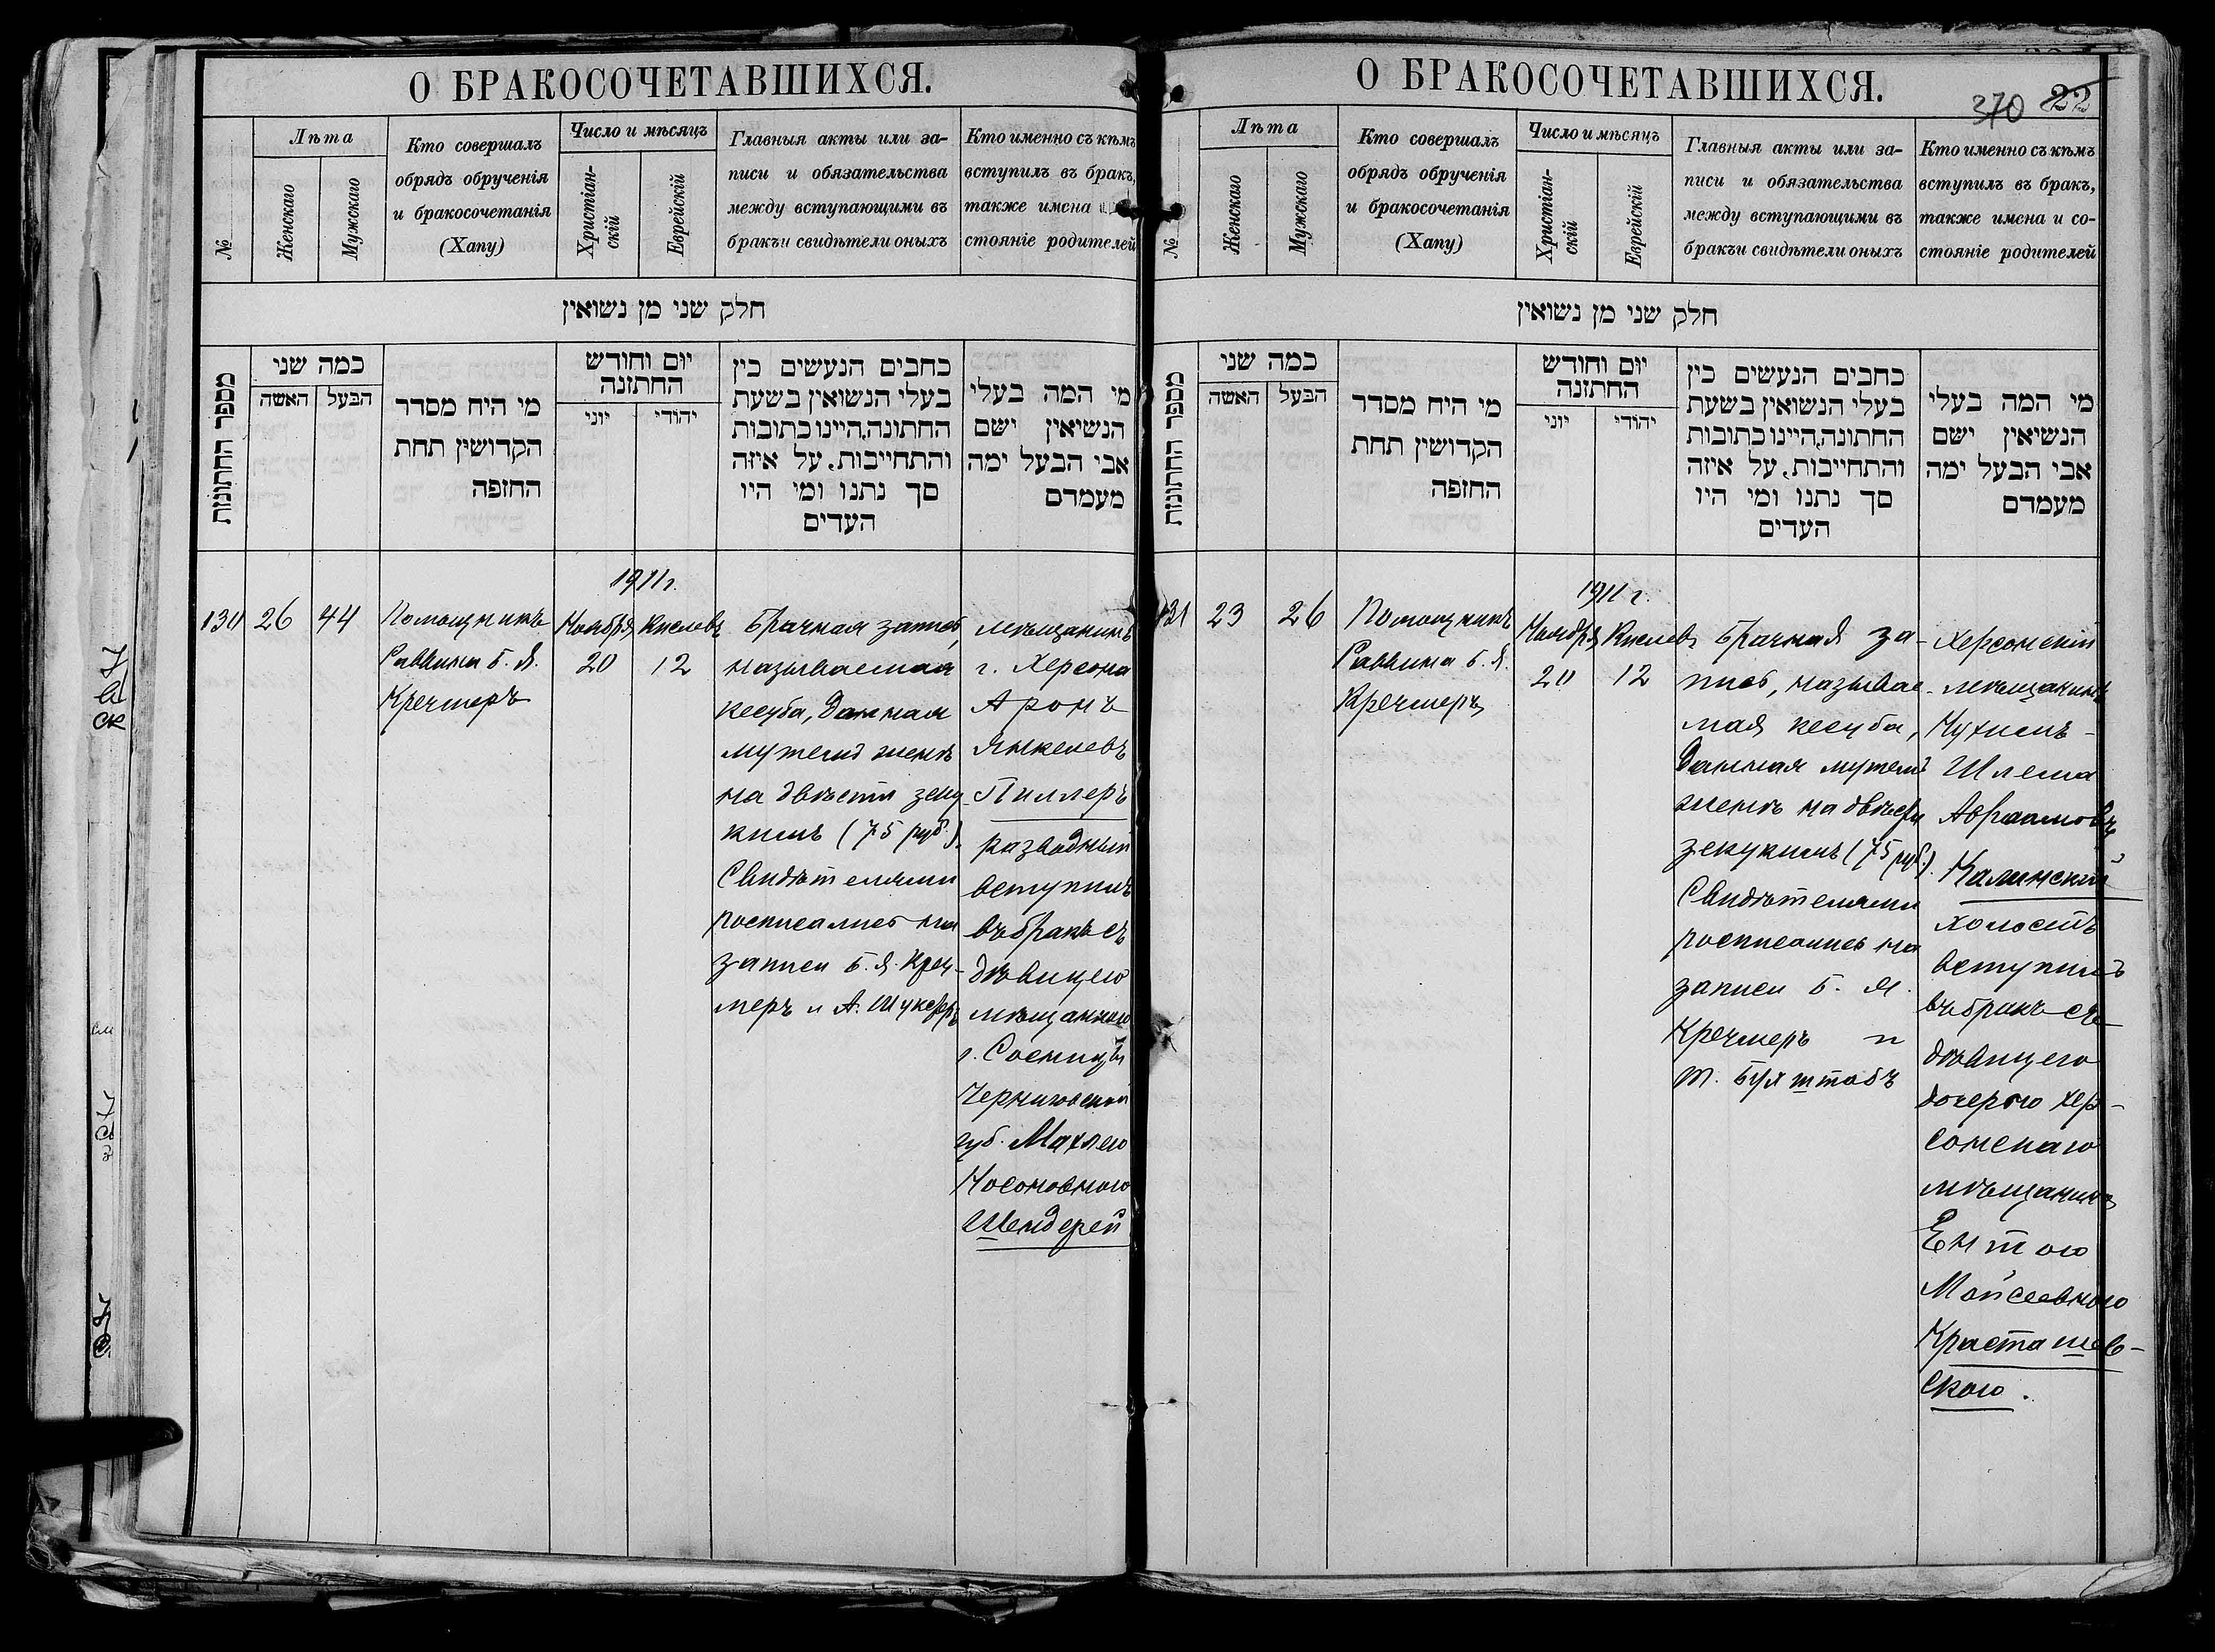 О БРАКОСОЧЕТАВШИХСЯ.
№
Лѣта
Женскаго
Мужскаго
Кто совершалъ
обрядъ обрученія
и бракосочетанія
(Хапу)
Число и мѣсяцъ
Христіан-
скій
Еврейскій
Главныя акты или за-
писи и обязательства
между вступающими въ
бракъи свидѣтели оныхъ
Кто именно съ кѣмъ
вступилъ въ бракъ,
также имена
стояніе родителей
חלק שני מן נשואין
מספר החתונות
כמה שני
האשה
הבעל
מי היח מסדר
הקדושין תחת
החזפה
יום וחודש
החתונה
יוני
יהודי
כחבים הנעשים כין
בעלי הנשואין בשעת
החתונה,היינו כתובות
והתחייבות, על איזה
סך נתנו ומי היו
העדים
מי המה בעלי
הנשיאין ישם
אבי הבעל ימה
מעמדם
1911 г.
130
26
44
Помощникъ
Раввина Б. Я.
Кречмеръ
Ноября
20
Кислевъ
12
Брачная запись,
называемая
кесуба, данная
мужемъ женѣ
на двѣсти зеку-
кимъ (75 руб.).
Свидѣтелями
росписались на
записи Б. Я. Креч-
меръ и А.
мѣщанинъ
г. Херсона
Аронъ
Янкелевъ
Пиллеръ
разводный
вступилъ
въ бракъ съ
дѣвицею
мѣщанкою
г. Сосницы
Черниговской
губ. Махлею
Носоновною
Шендерей
О БРАКОСОЧЕТАВШИХСЯ.
370 22
№
Лѣта
Женскаго
Мужскаго
Кто совершалъ
обрядъ обрученія
и бракосочетанія
(Хапу)
Число и мѣсяцъ
Христіан-
скій
Еврейскій
Главныя акты или за-
писи и обязательства
между вступающими въ
бракъи свидѣтели оныхъ
Кто именно съ кѣмъ
вступилъ въ бракъ,
также имена и со-
стояніе родителей
חלק שני מן נשואין
מספר החתונות
כמה שני
האשה
הבעל
מי היח מסדר
הקדושין תחת
החזפה
יום וחודש
החתונה
יוני
יהודי
כחבים הנעשים כין
בעלי הנשואין בשעת
החתונה,היינו כתובות
והתחייבות, על איזה
סך נתנו ומי היו
העדים
מי המה בעלי
הנשיאין ישם
אבי הבעל ימה
מעמדם
1911 г.
131
23
26
Помощникъ
Раввина Б. Я.
Кречмеръ
Ноября
20
Кислевъ
12
Брачная за-
пись, называе-
мая кесуба,
данная мужемъ
женѣ на двѣсти
зекукимъ (75 руб.).
Свидѣтелями
росписались на
записи Б. Я.
Кречмеръ и
Т. Бухштабъ
Херсонскій
мѣщанинъ
Нухимъ-
Шлема
Авраамовъ
Калинскій
холостъ
вступилъ
въ бракъ съ
дѣвицею
дочерью хер-
сонскаго
мѣщанина
Ентою
Мойсеевною
Красташев-
скою.